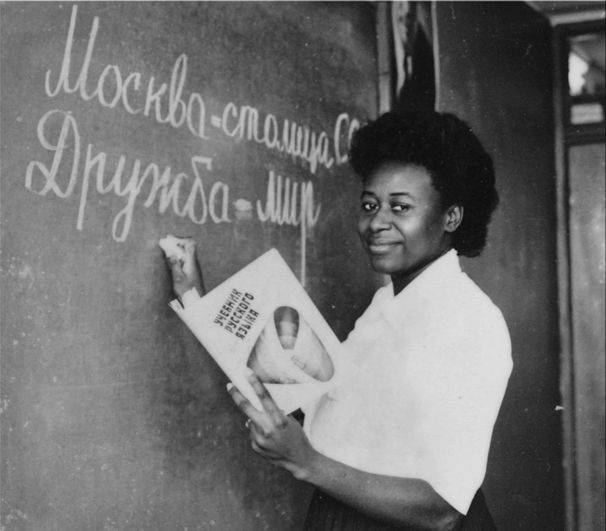 Москва-столица СС
Дружба-мир
УЧЕБНИК
РУССКОГО
ЯЗЫКА